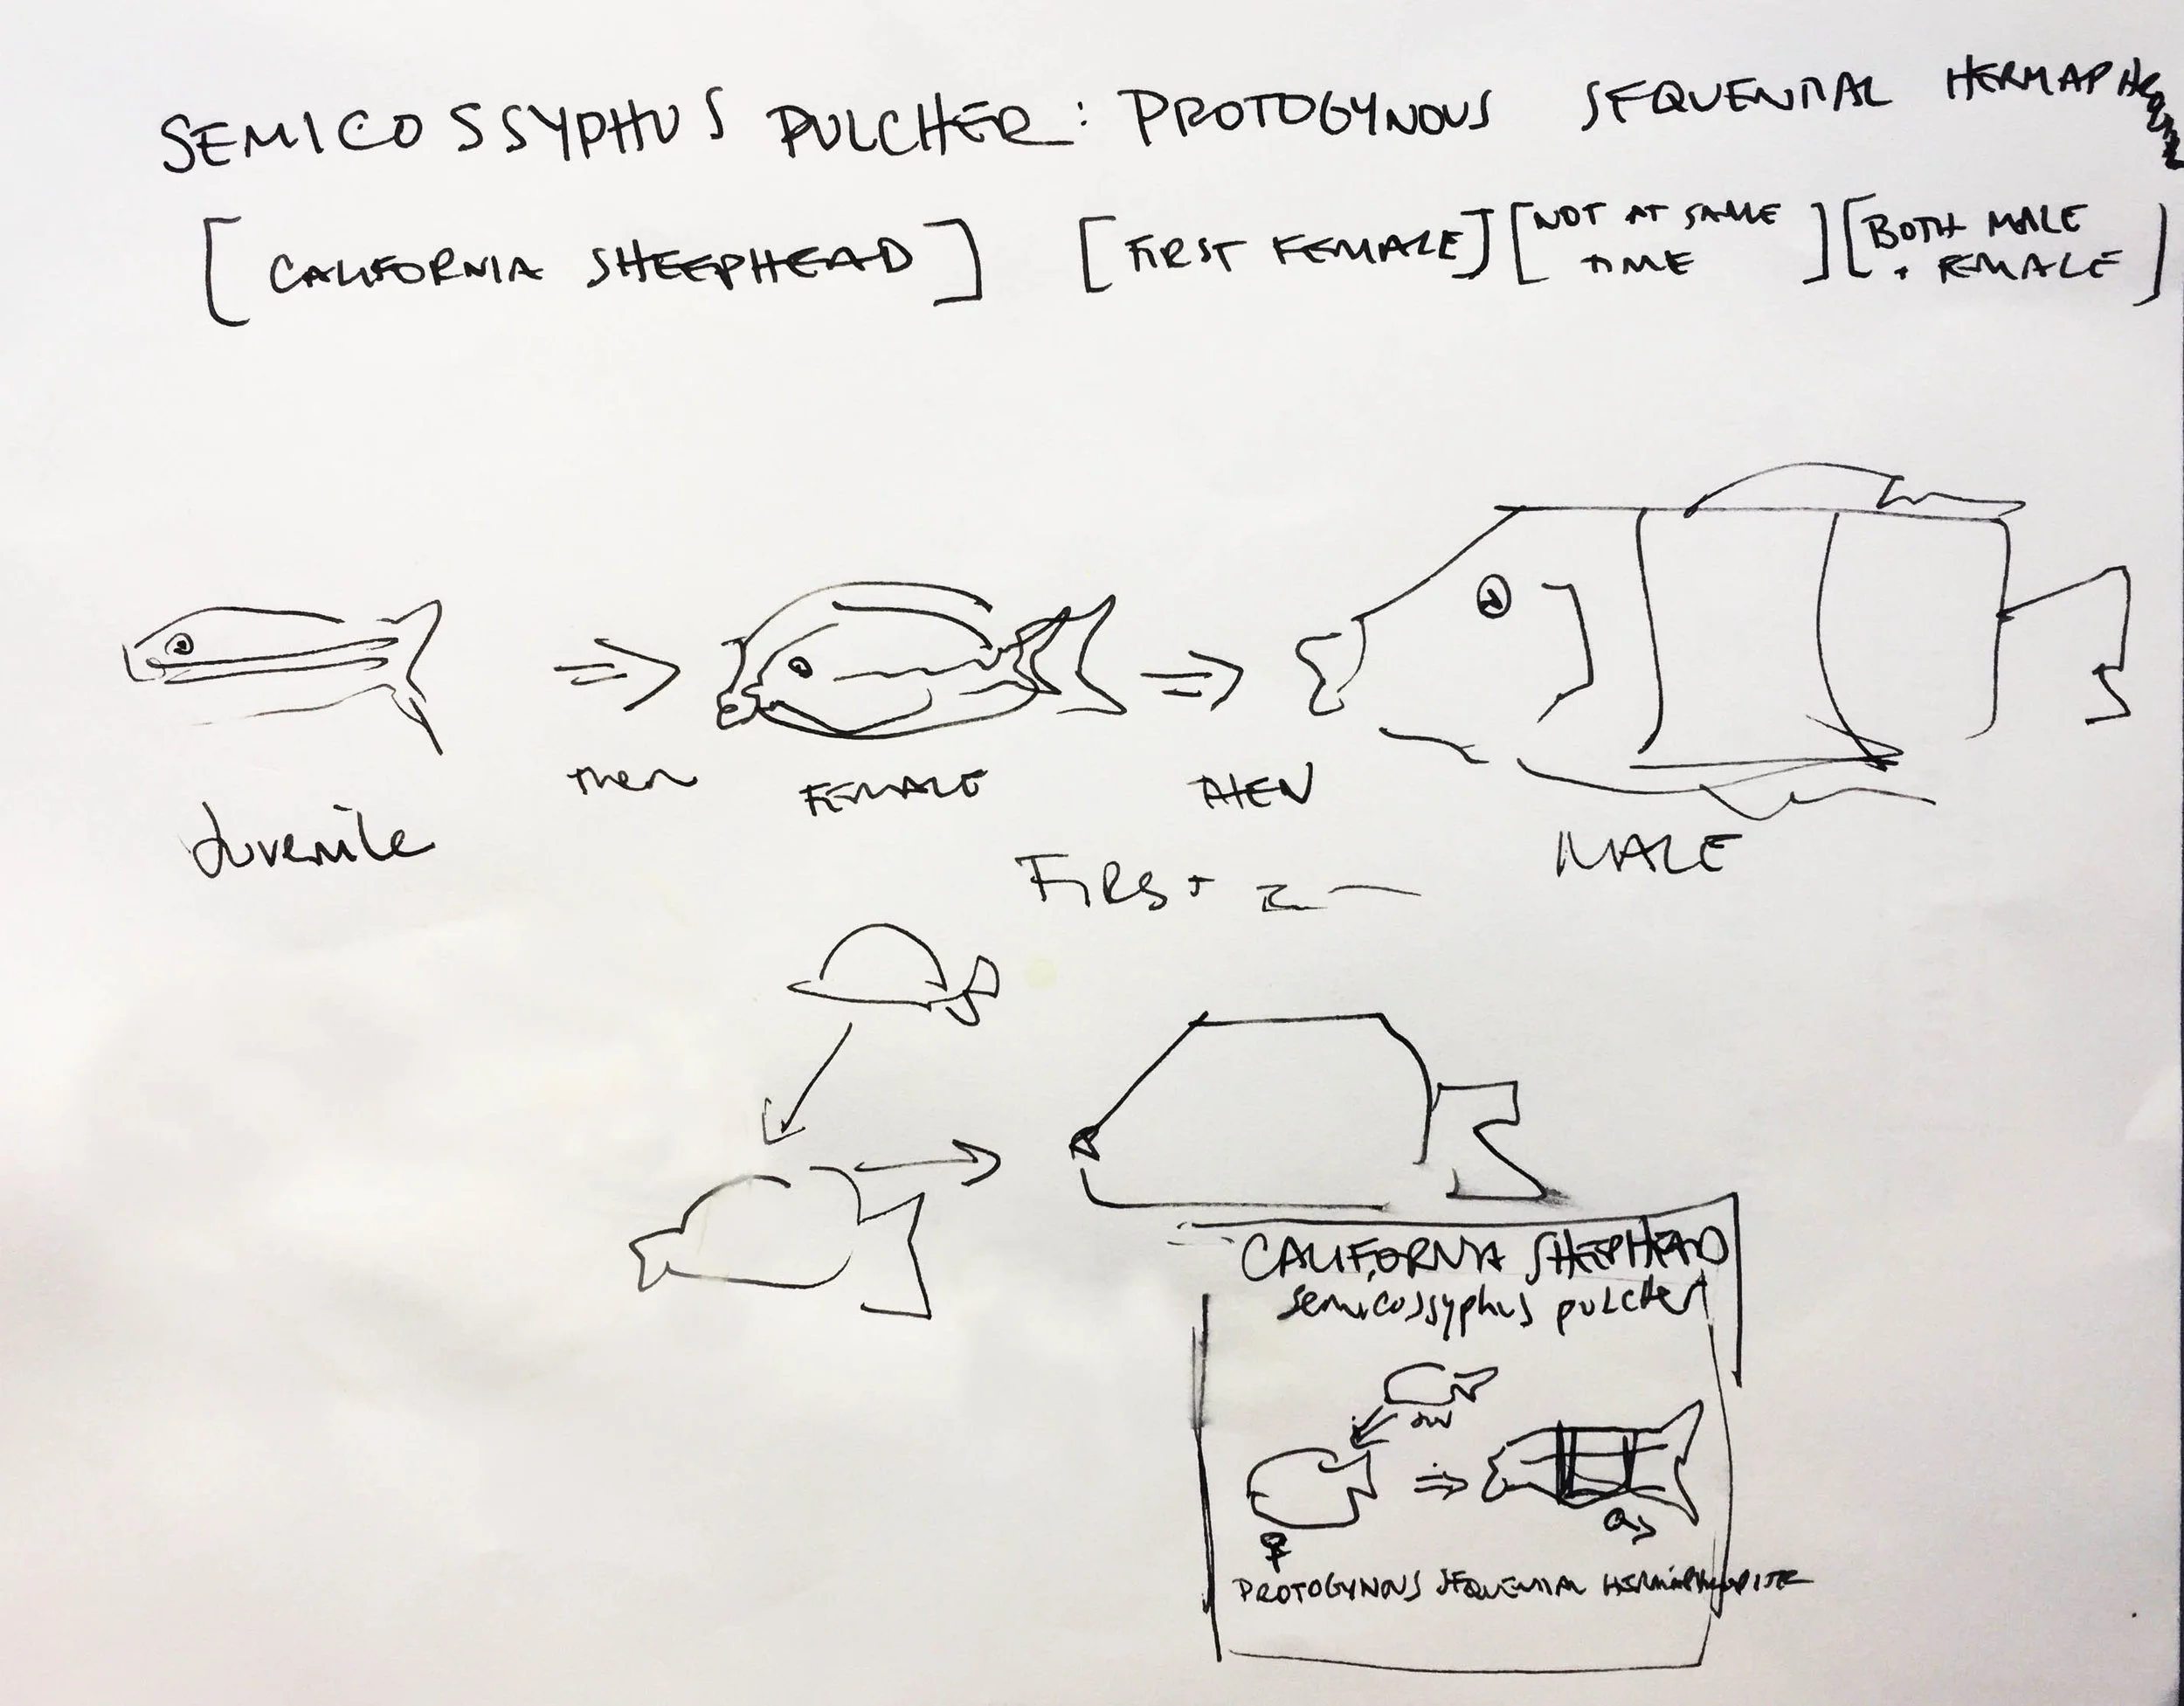 SEMICOSSYPHUS PULCHER: PROTOGYNOUS SEQUENTIAL
[CALIFORNIA SHEEPHEAD] [FIRST FEMALE] [NOT AT SAME TIME] [BOTH MALE + FEMALE]
Juvenile
then
FEMALE
THEN
MALE
FIRST
CALIFORNIA SHEEPHEAD
semicossyphus pulcher
JUV
♀
♂
PROTOGYNOUS SEQUENTIAL HERMAPHRODITE